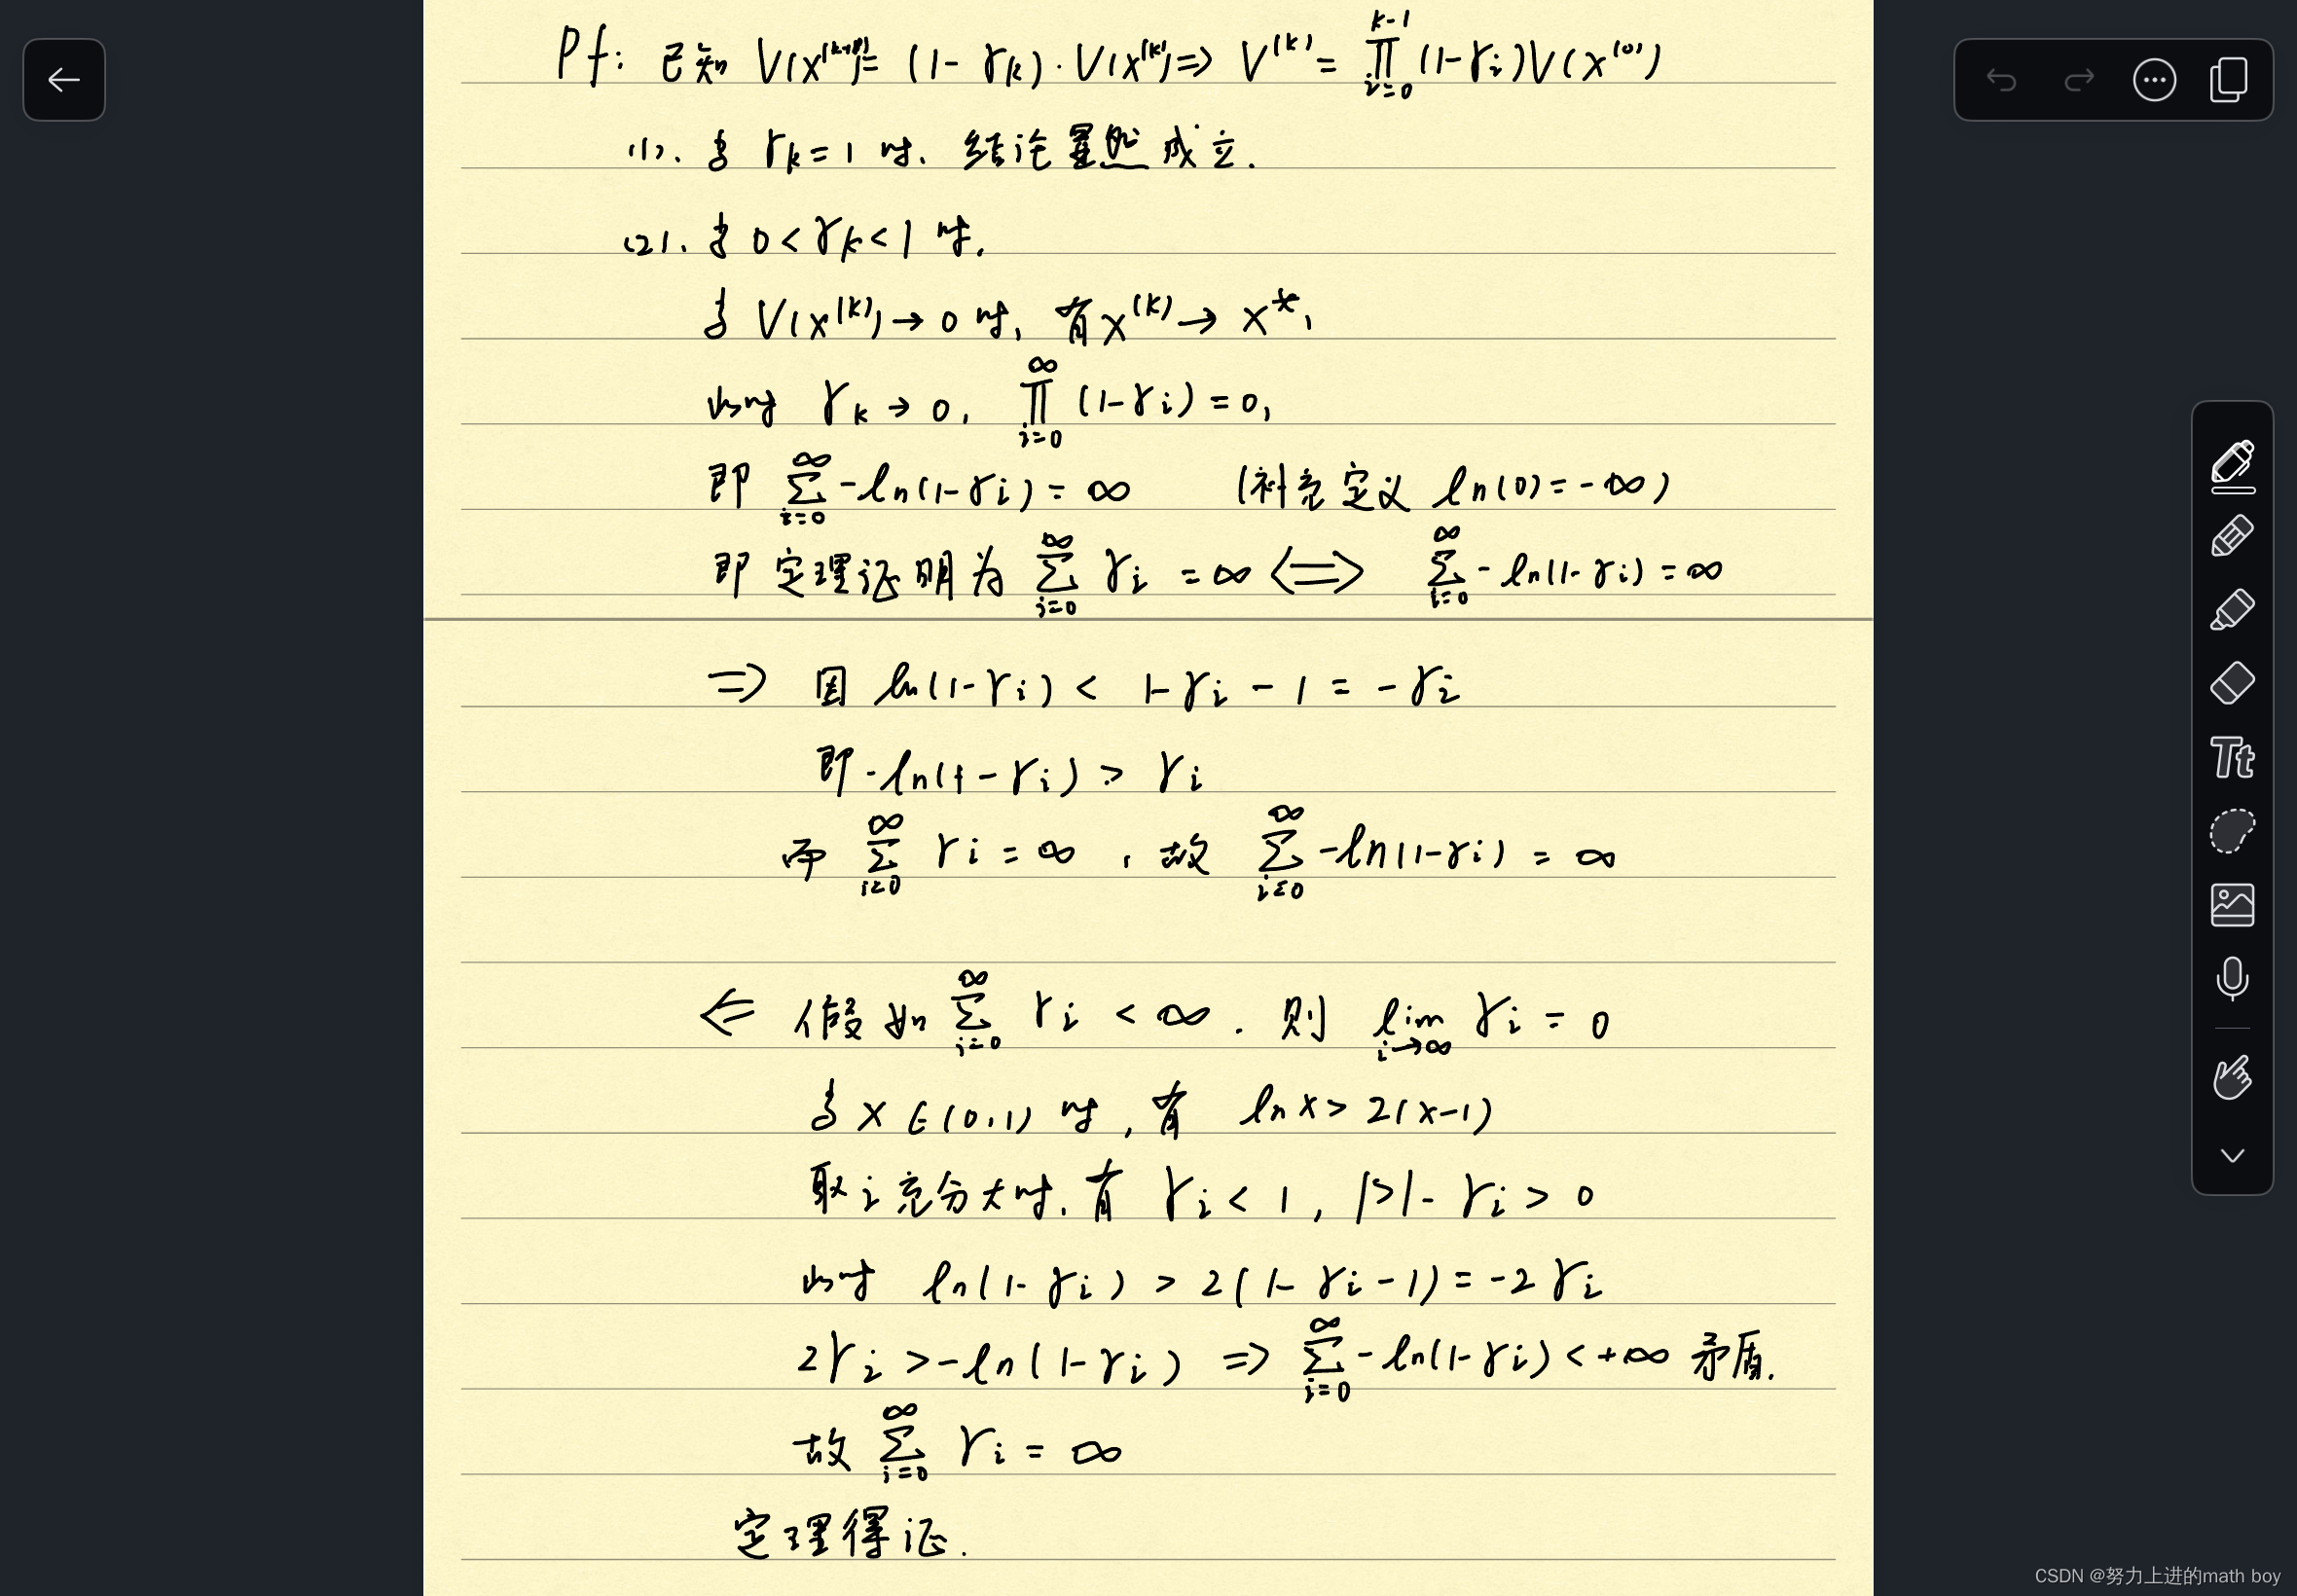 Pf: 已知 V(x^(k+1)) = (1-γk)·V(x^(k)) ⇒ V^(k) = ∏_{i=0}^{k-1} (1-γi)V(x^(0))
(1). 当 γk=1 时. 结论显然成立.
(2). 当 0<γk<1 时.
当 V(x^(k)) → 0 时, 有 x^(k) → x*,
此时 γk → 0, ∏_{i=0}^{∞} (1-γi) = 0,
即 ∑_{i=0}^{∞} -ln(1-γi) = ∞ (补充定义 ln(0)=-∞)
即定理证明为 ∑_{i=0}^{∞} γi = ∞ ⟺ ∑_{i=0}^{∞} -ln(1-γi) = ∞
⇒ 因 ln(1-γi) < 1-γi-1 = -γi
即 -ln(1-γi) > γi
而 ∑_{i=0}^{∞} γi = ∞, 故 ∑_{i=0}^{∞} -ln(1-γi) = ∞
⇐ 假如 ∑_{i=0}^{∞} γi < ∞. 则 lim_{i→∞} γi = 0
当 x∈(0,1) 时, 有 ln x > 2(x-1)
取 i 充分大时, 有 γi < 1, 1>1-γi>0
此时 ln(1-γi) > 2(1-γi-1) = -2γi
2γi > -ln(1-γi) ⇒ ∑_{i=0}^{∞} -ln(1-γi) < +∞ 矛盾.
故 ∑_{i=0}^{∞} γi = ∞
定理得证.
Tt
CSDN @努力上进的math boy